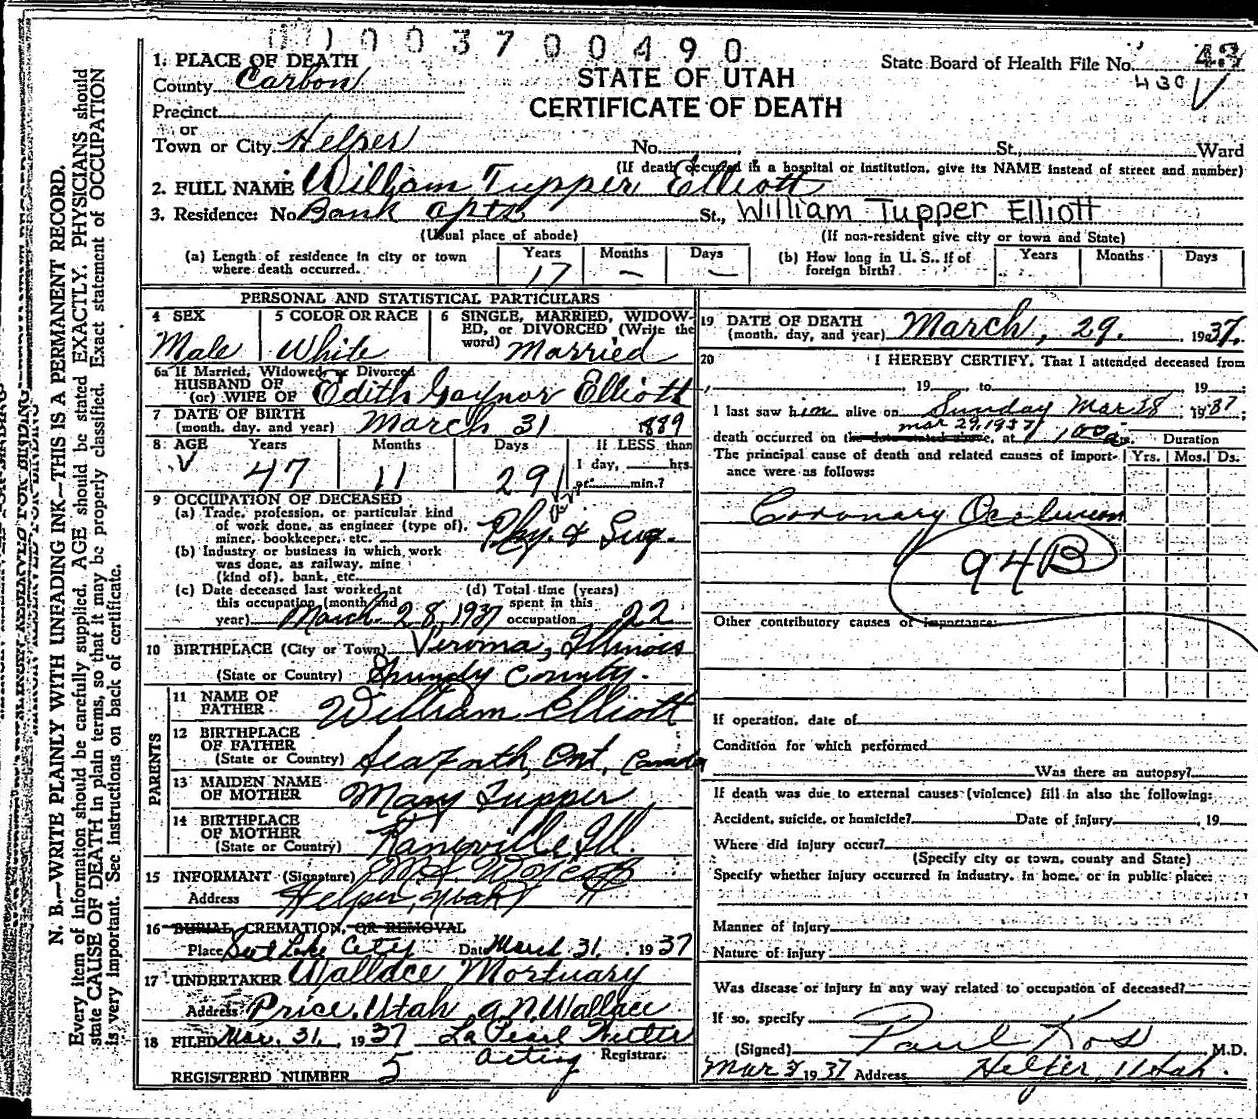 0003700490
1. PLACE OF DEATH
County Carbon
STATE OF UTAH
CERTIFICATE OF DEATH
State Board of Health File No. 43
430
Precinct
or
Town or City Helper No. St., Ward
(If death occurred in a hospital or institution, give its NAME instead of street and number)
2. FULL NAME William Tupper Elliott
3. Residence: No. Bank Apts St., William Tupper Elliott
(Usual place of abode) (If non-resident give city or town and State)
(a) Length of residence in city or town where death occurred. Years 17 Months – Days –
(b) How long in U. S., if of foreign birth? Years Months Days
PERSONAL AND STATISTICAL PARTICULARS
4 SEX Male
5 COLOR OR RACE White
6 SINGLE, MARRIED, WIDOWED, or DIVORCED (Write the word) Married
6a If Married, Widowed, or Divorced
HUSBAND OF
(or) WIFE OF Edith Gaynor Elliott
7 DATE OF BIRTH
(month, day, and year) March 31 1889
8 AGE Years 47 Months 11 Days 29
If LESS than
1 day, hrs.
or min.?
9 OCCUPATION OF DECEASED
(a) Trade, profession, or particular kind
of work done, as engineer (type of),
miner, bookkeeper, etc. Phy. & Sug.
(b) Industry or business in which work
was done, as railway, mine
(kind of), bank, etc.
(c) Date deceased last worked at
this occupation (month and
year) March 28, 1937
(d) Total time (years)
spent in this
occupation 22
10 BIRTHPLACE (City or Town) Verona, Illinois
(State or Country) Grundy County.
PARENTS
11 NAME OF
FATHER William Elliott
12 BIRTHPLACE
OF FATHER
(State or Country) Seaforth, Ont, Canada
13 MAIDEN NAME
OF MOTHER Mary Tupper
14 BIRTHPLACE
OF MOTHER
(State or Country) Ill.
15 INFORMANT (Signature)
Address Helper, Utah
16 BURIAL, CREMATION, OR REMOVAL
Place Salt Lake City Date March 31, 1937
17 UNDERTAKER Wallace Mortuary
Address Price, Utah A N Wallace
18 FILED Mar. 31, 1937 La Pearl
Acting Registrar.
REGISTERED NUMBER 5
19 DATE OF DEATH
(month, day, and year) March, 29, 1937.
20 I HEREBY CERTIFY, That I attended deceased from
, 19 , to , 19
I last saw him alive on Sunday Mar 28 1937
mar 29, 1937
death occurred on the date stated above, at 1 00 a m. Duration
The principal cause of death and related causes of import- Yrs. Mos. Ds.
ance were as follows:
Coronary Occlusion
94B
Other contributory causes of importance:
If operation, date of
Condition for which performed
Was there an autopsy?
If death was due to external causes (violence) fill in also the following:
Accident, suicide, or homicide? Date of injury , 19
Where did injury occur?
(Specify city or town, county and State)
Specify whether injury occurred in industry, in home, or in public place:
Manner of injury
Nature of injury
Was disease or injury in any way related to occupation of deceased?
If so, specify
(Signed) Paul Kos M.D.
1937 Address Helper, Utah.
N. B.—WRITE PLAINLY WITH UNFADING INK—THIS IS A PERMANENT RECORD.
Every item of information should be carefully supplied. AGE should be stated EXACTLY. PHYSICIANS should
state CAUSE OF DEATH in plain terms, so that it may be properly classified. Exact statement of OCCUPATION
is very important. See instructions on back of certificate.
MARGIN RESERVED FOR BINDING